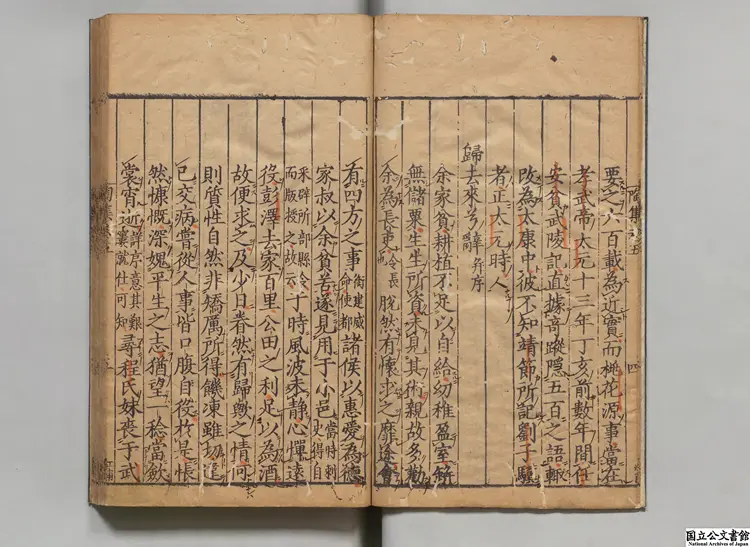 陶集卷五
四
要之六百載為近實而桃花源事當在
孝武帝太元十三年丁亥前數年間任
安貧武陵記直據高蹤隱五百之語輒
改為太康中彼不知靖節所記劉子驥
者正太元時人
歸去來兮辭并序
余家貧耕植不足以自給幼稚盈室缾
無儲粟生生所資未見其術親故多勸
余為長吏令長脫然有懷求之靡途會
有四方之事衛建威命使都諸侯以惠愛為德
家叔以余貧苦遂見用于小邑當時刺史得自
采辟所部縣令而版授之故云于時風波未靜心憚遠
役彭澤去家百里公田之利足以為酒
故便求之及少日眷然有歸歟之情何
則質性自然非矯厲所得饑凍雖切違
已交病嘗從人事皆口腹自役於是悵
然慷慨深媿平生之志猶望一稔當歛
裳宵逝詳序意其就仕可知尋程氏妹喪于武
国立公文書館
National Archives of Japan